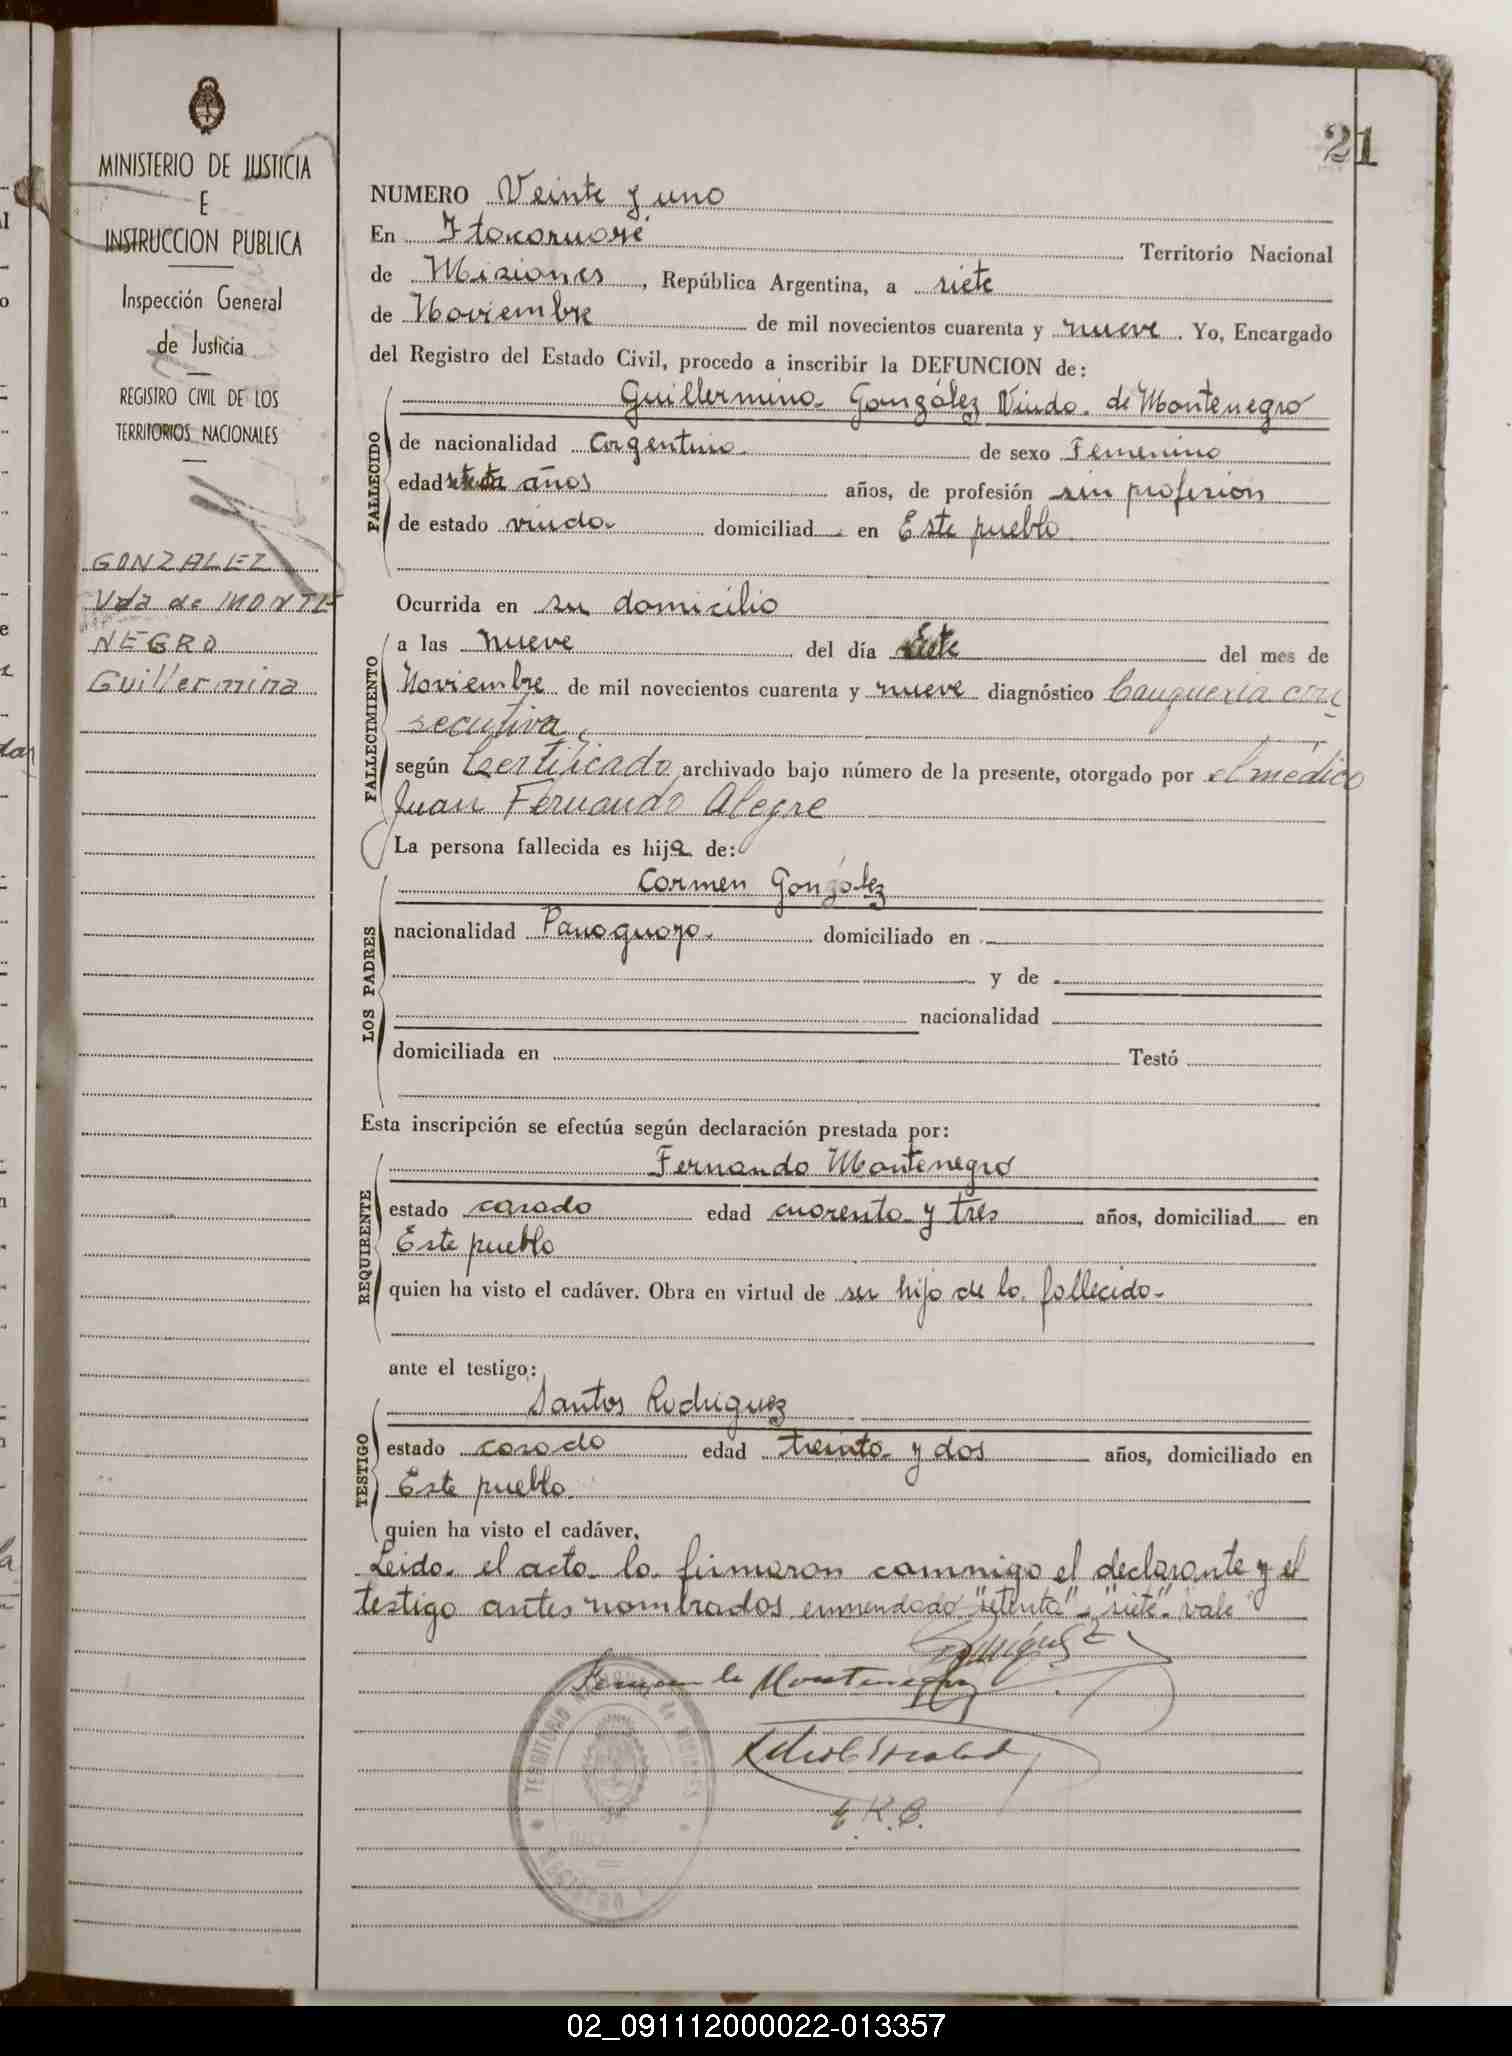 21
MINISTERIO DE JUSTICIA
E
INSTRUCCION PUBLICA
Inspección General
de Justicia
REGISTRO CIVIL DE LOS
TERRITORIOS NACIONALES
GONZALEZ
Vda de MONTE
NEGRO
Guillermina
NUMERO Veinte y uno
En Itacaruaré Territorio Nacional
de Misiones, República Argentina, a siete
de Noviembre de mil novecientos cuarenta y nueve. Yo, Encargado
del Registro del Estado Civil, procedo a inscribir la DEFUNCION de:
Guillermina González Viuda de Montenegro
FALLECIDO
de nacionalidad argentina de sexo Femenino
edad setenta años años, de profesión sin profesión
de estado viuda domiciliad en Este pueblo
Ocurrida en su domicilio
FALLECIMIENTO
a las nueve del día siete del mes de
Noviembre de mil novecientos cuarenta y nueve diagnóstico
secutiva
según Certificado archivado bajo número de la presente, otorgado por el médico
Juan Fernando Alegre
La persona fallecida es hija de:
LOS PADRES
Carmen González
nacionalidad Paraguaya domiciliado en
y de
nacionalidad
domiciliada en Testó
Esta inscripción se efectúa según declaración prestada por:
REQUIRENTE
Fernando Montenegro
estado casado edad cuarenta y tres años, domiciliad en
Este pueblo
quien ha visto el cadáver. Obra en virtud de ser hijo de la fallecida-
ante el testigo:
TESTIGO
Santos Rodriguez
estado casado edad treinta y dos años, domiciliado en
Este pueblo
quien ha visto el cadáver,
Leida el acta la firmaron conmigo el declarante y el
testigo antes nombrados enmendado "setenta" - "siete" - Vale
Rodríguez
Montenegro
TERRITORIO
REGISTRO
02_091112000022-013357